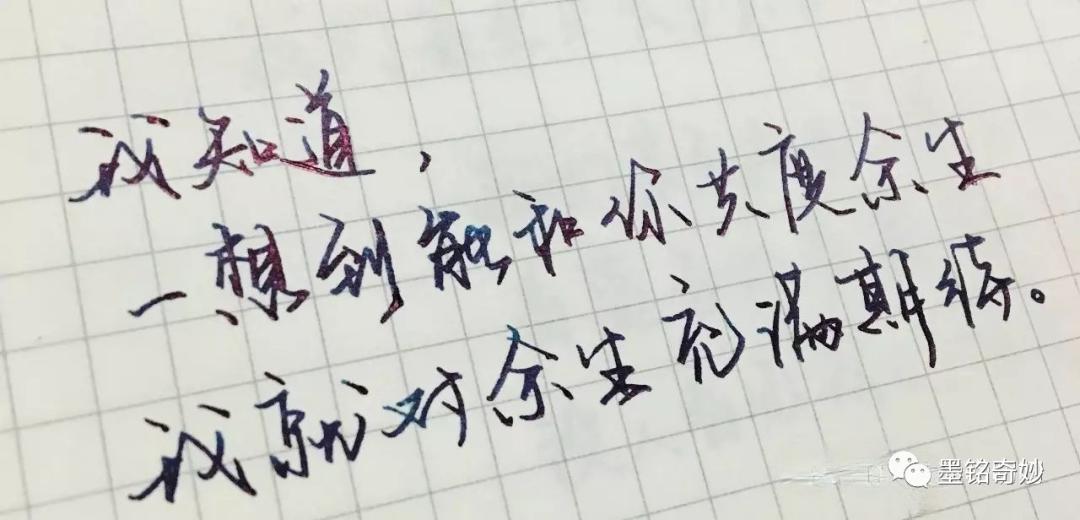 我知道,
一想到能和你共度余生
我就对余生充满期待。
墨铭奇妙